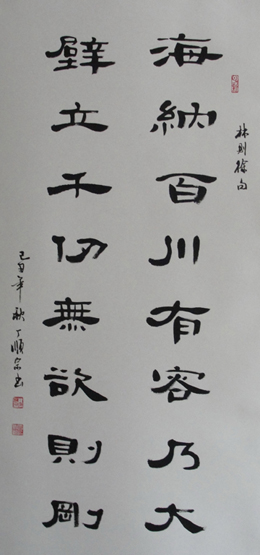 林则徐句
海納百川有容乃大
壁立千仞無欲則剛
己丑年秋丁順泉書